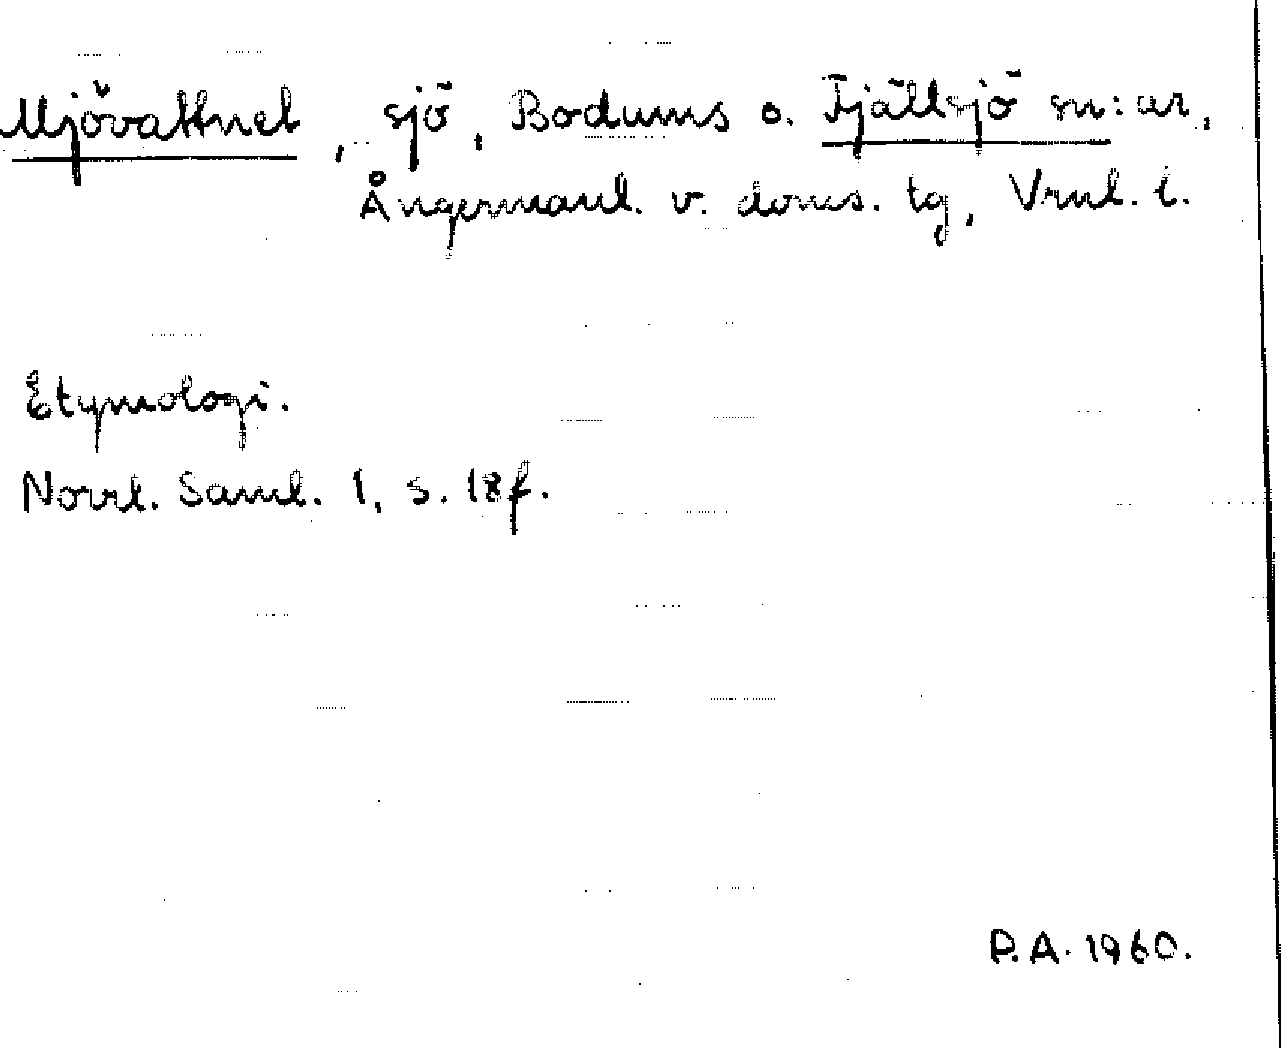 Mjövattnet, sjö, Bodums o. Fjällsjö sn:ar,
Ångermanl. v. doms. tg, Vrnl. l.
Etymologi.
Norrl. Saml. 1, s. 18f.
P.A. 1960.